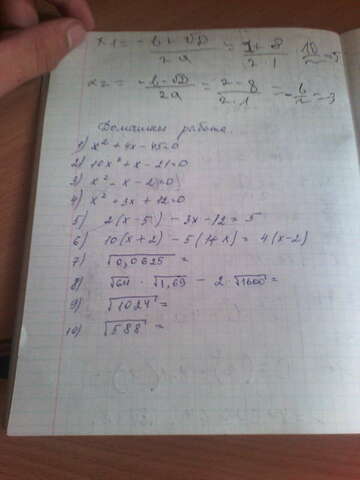 x₁ = -b + √D / 2a = 2 + 8 / 2·1 = 10 / 2 = 5
x₂ = -b - √D / 2a = 2 - 8 / 2·1 = -6 / 2 = -3
Домашняя работа.
1) x² + 4x - 45 = 0
2) 10x² + x - 21 = 0
3) x² - x - 2 = 0
4) x² + 3x + 12 = 0
5) 2(x - 5) - 3x - 12 = 5
6) 10(x + 2) - 5(14 x) = 4(x - 2)
7) √0,0625 =
8) √64 · √1,69 - 2·√1600 =
9) √1024 =
10) √588 =